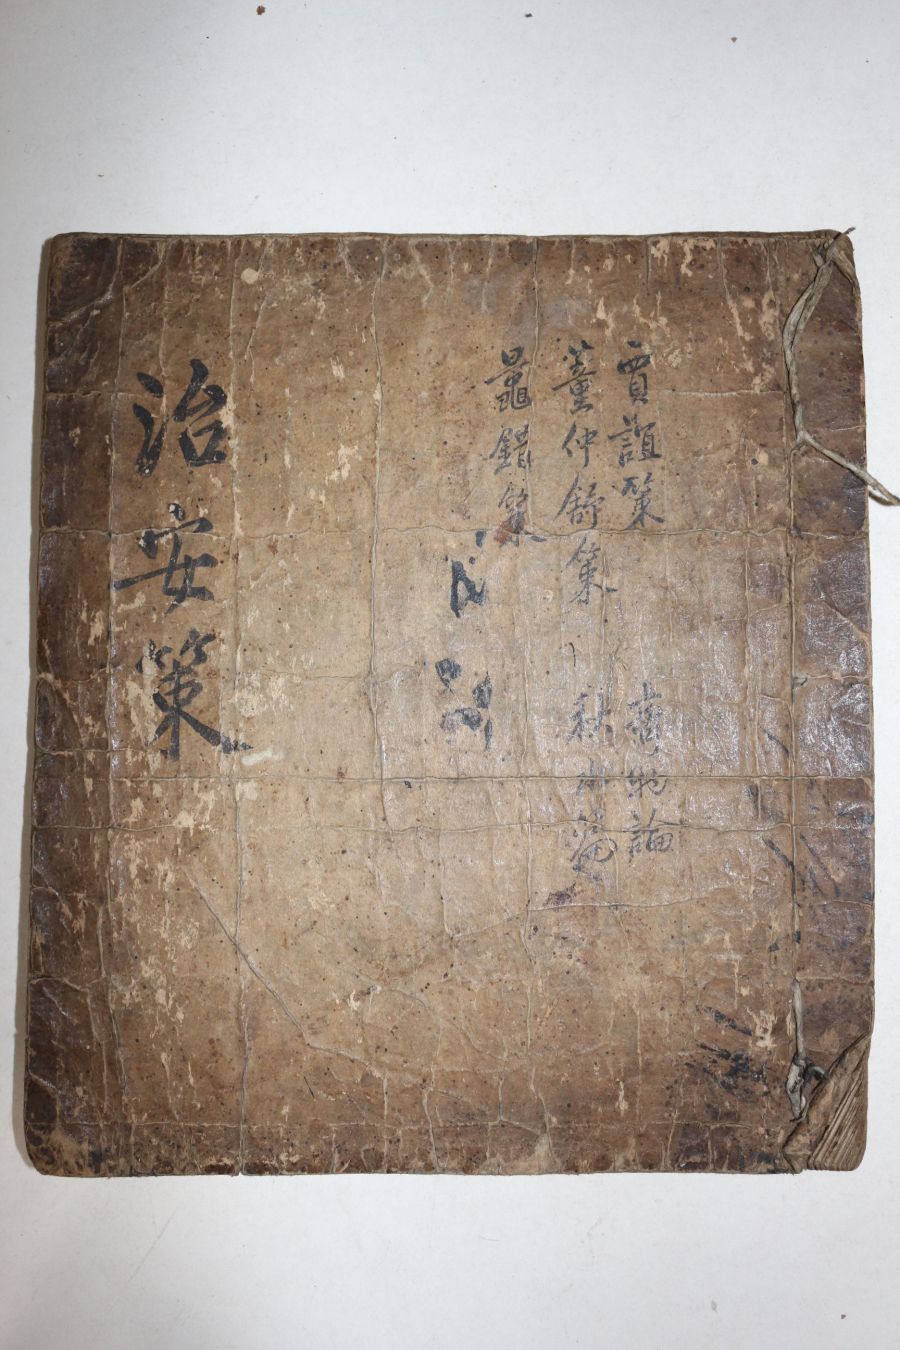 賈誼策 齊物論
董仲舒策 秋水篇
鼂錯策
治安策